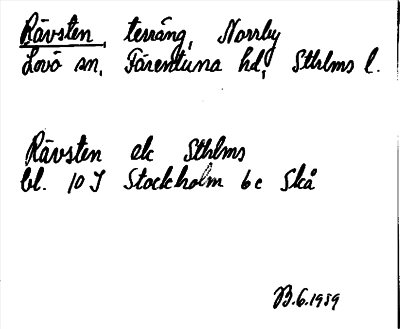 Rävsten, terräng, Norrby
Lovö sn, Färentuna hd, Sthlms l.
Rävsten ek Sthlms
bl. 10 I Stockholm 6c Skå
B.6.1959